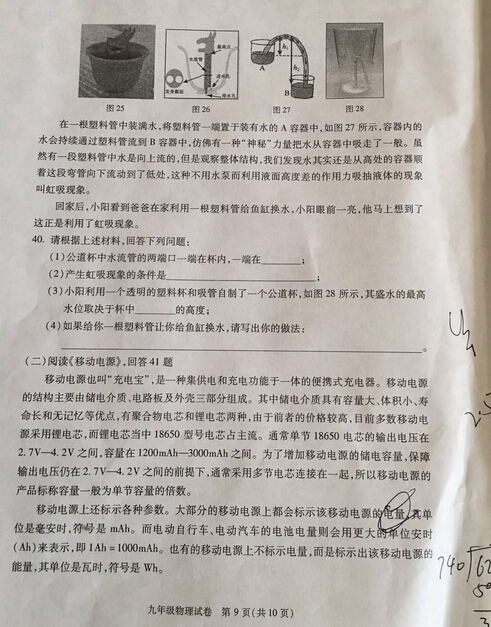 最高点
水流管
进水孔
出水孔
A
h₁
h₂
B
图25 图26 图27 图28
在一根塑料管中装满水,将塑料管一端置于装有水的 A 容器中,如图 27 所示,容器内的
水会持续通过塑料管流到 B 容器中,仿佛有一种“神秘”力量把水从容器中吸走了一般。虽
然有一段塑料管中水是向上流的,但是观察整体结构,我们发现水其实还是从高处的容器顺
着这段弯管向下流动到了低处,这种不用水泵而利用液面高度差的作用力吸抽液体的现象
叫虹吸现象。
回家后,小阳看到爸爸在家利用一根塑料管给鱼缸换水,小阳眼前一亮,他马上想到了
这正是利用了虹吸现象。
40. 请根据上述材料,回答下列问题:
(1)公道杯中水流管的两端口一端在杯内,一端在______;
(2)产生虹吸现象的条件是______;
(3)小阳利用一个透明的塑料杯和吸管自制了一个公道杯,如图 28 所示,其盛水的最高
水位取决于杯中______的高度;
(4)如果给你一根塑料管让你给鱼缸换水,请写出你的做法:
______。
(二)阅读《移动电源》,回答 41 题
移动电源也叫“充电宝”,是一种集供电和充电功能于一体的便携式充电器。移动电源
的结构主要由储电介质、电路板及外壳三部分组成。其中储电介质具有容量大、体积小、寿
命长和无记忆等优点,有聚合物电芯和锂电芯两种,由于前者的价格较高,目前多数移动电
源采用锂电芯,而锂电芯当中 18650 型号电芯占主流。通常单节 18650 电芯的输出电压在
2.7V—4.2V 之间,容量在 1200mAh—3000mAh 之间。为了增加移动电源的储电容量,保障
输出电压仍在 2.7V—4.2V 之间的前提下,通常采用多节电芯连接在一起,所以移动电源的
产品标称容量一般为单节容量的倍数。
移动电源上还标示各种参数。大部分的移动电源上都会标示该移动电源的电量,其单
位是毫安时,符号是 mAh。而电动自行车、电动汽车的电池电量则会用更大的单位安时
(Ah)来表示,即 1Ah=1000mAh。也有的移动电源上不标示电量,而是标示出该移动电源的
能量,其单位是瓦时,符号是 Wh。
740
九年级物理试卷 第 9 页(共 10 页)